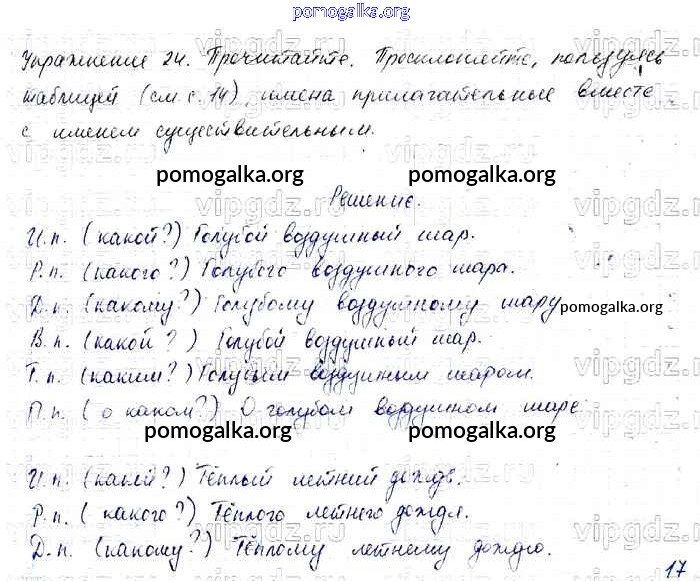 pomogalka.org
Упражнение 24. Прочитайте. Просклоняйте, пользуясь
таблицей (см с. 14), имена прилагательные вместе
с именем существительным.
pomogalka.org pomogalka.org
Решение.
И.п. (какой?) Голубой воздушный шар.
Р.п. (какого?) Голубого воздушного шара.
Д.п. (какому?) Голубому воздушному шару
pomogalka.org
В.п. (какой?) Голубой воздушный шар.
Т.п. (каким?) Голубым воздушным шаром.
П.п. (о каком?) О голубом воздушном шаре
pomogalka.org pomogalka.org
И.п. (какой?) Тёплый летний дождь.
Р.п. (какого?) Тёплого летнего дождя.
Д.п. (какому?) Тёплому летнему дождю.
17